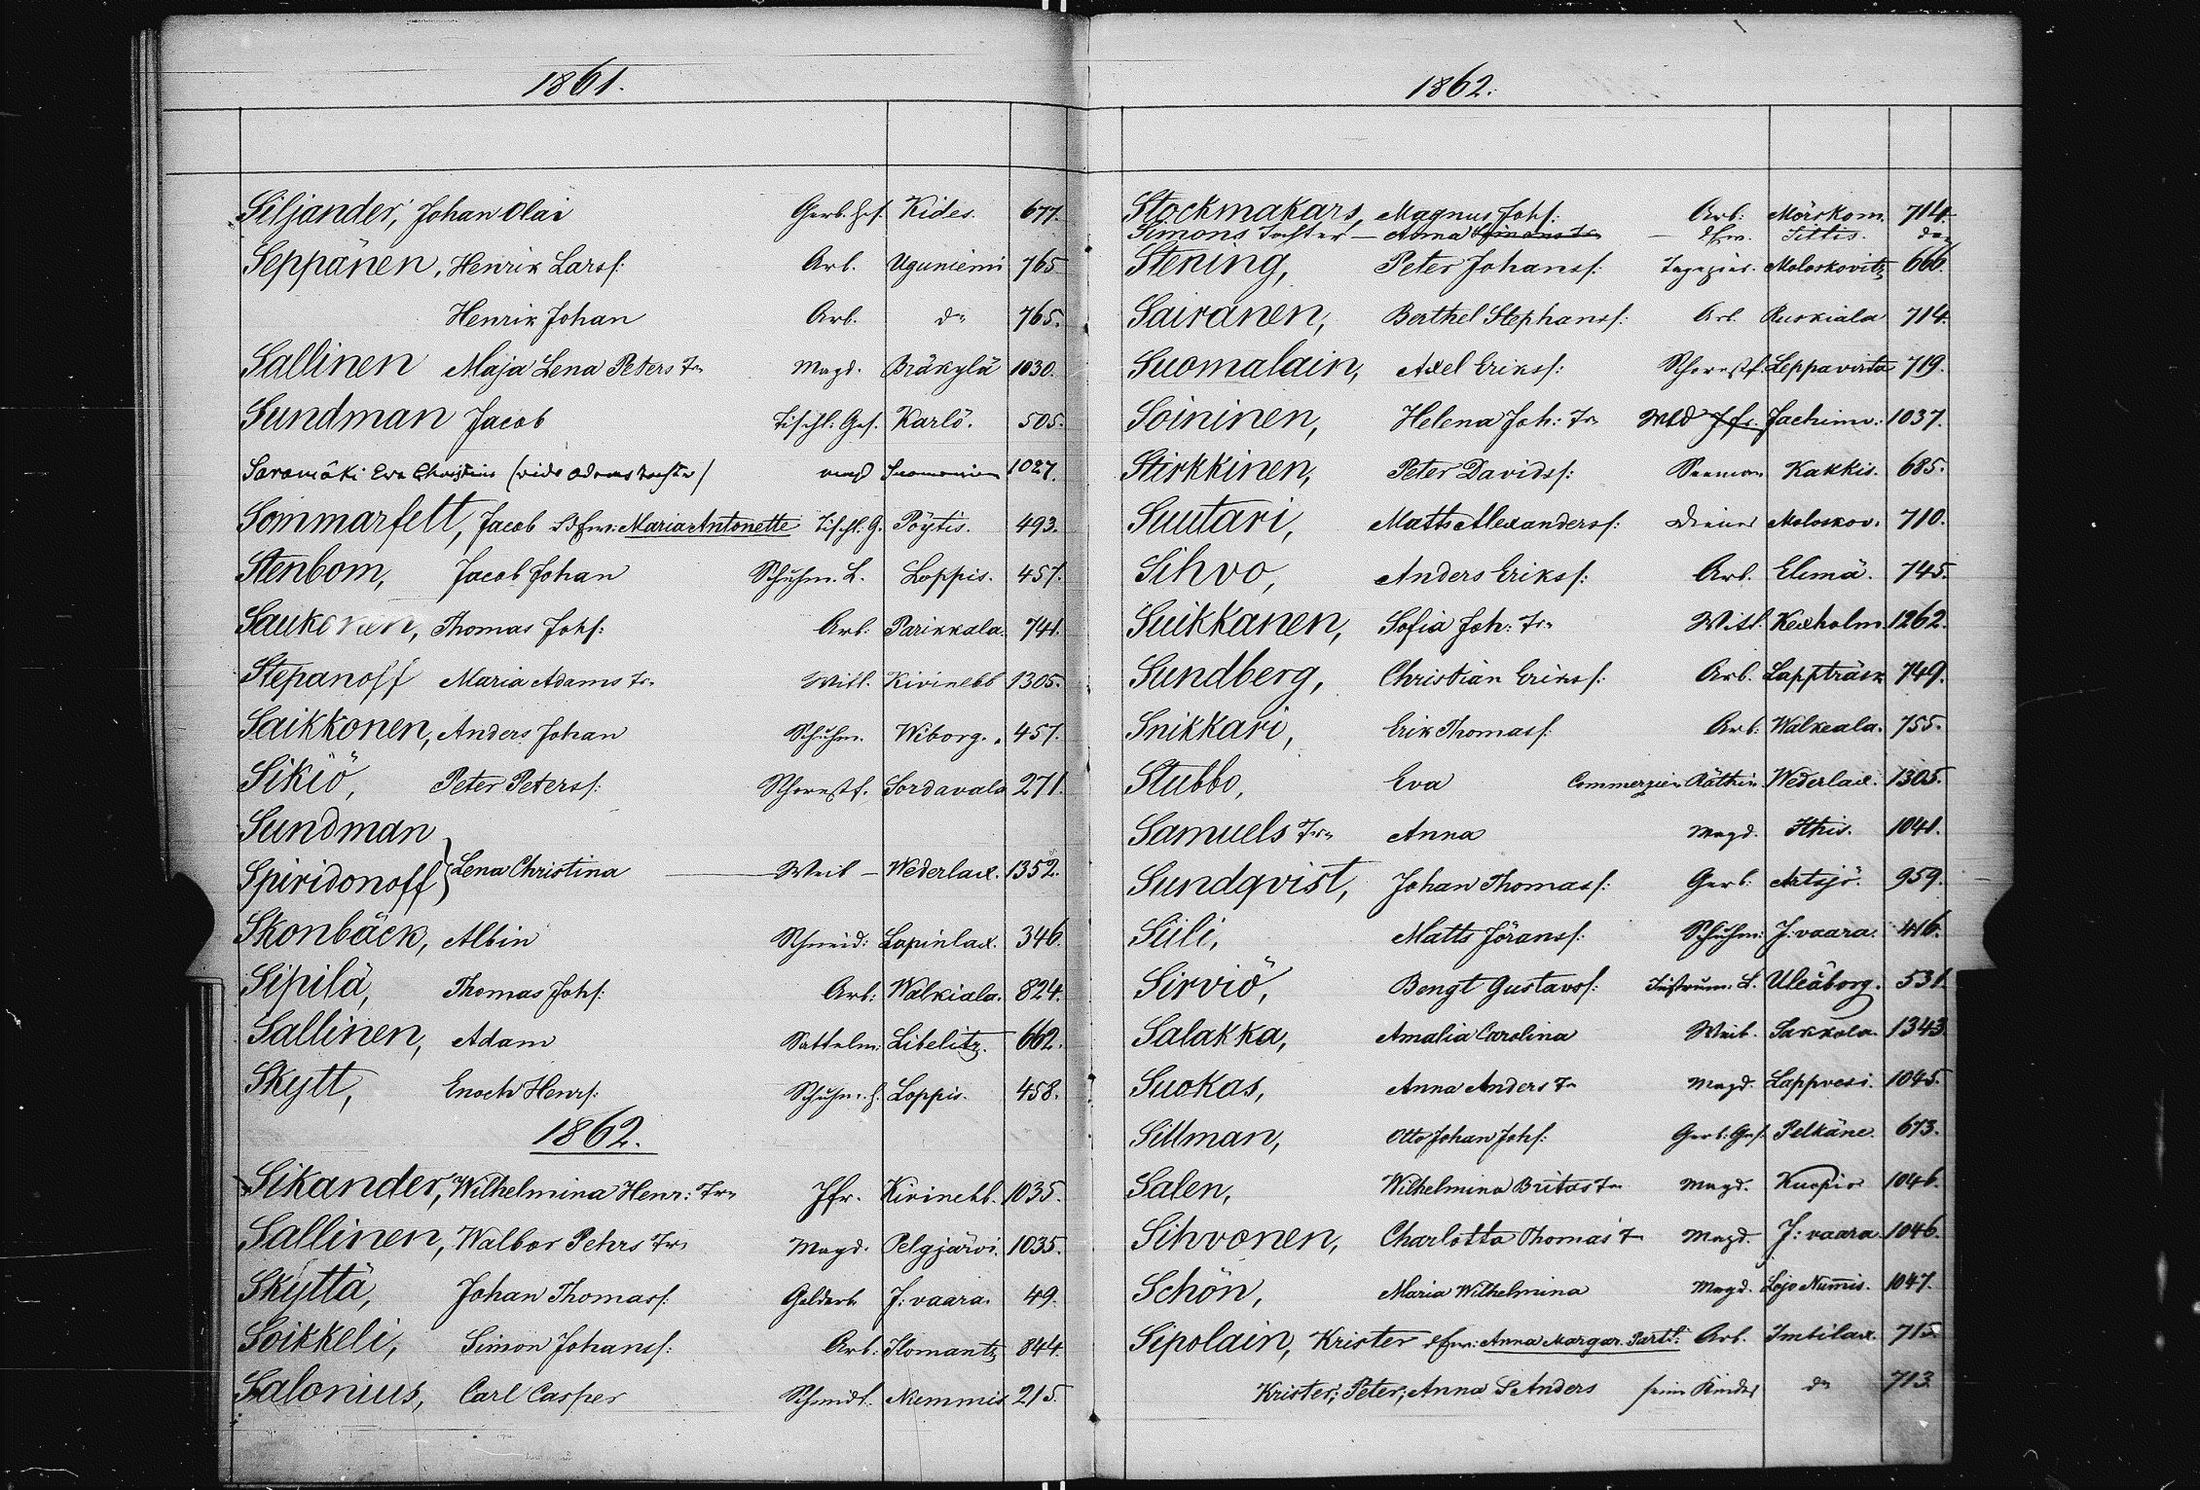 1861.
Siljander, Johan Olai Gerb. Ges. Kides. 677.
Seppänen, Henrik Larsf: Arb. Uguniemi 765
Henrik Johan Arb. do 765.
Sallinen Maja Lena Peters Tr. Magd. Bräkylä 1030.
Sundman Jacob Tischl. Ges. Karlö. 505.
Saramäki Eva Christina (vide Adams tochter) magd 1027.
Sommarfelt, Jacob & Efrw: Maria Antonette Tischl. G. Pöytis. 493.
Stenbom, Jacob Johan Schuhm. L. Loppis. 457.
Saukonen, Thomas Johf: Arb. Parikkala. 741.
Stepanoff Maria Adams Tr. Witt. Kivinebb 1305.
Saikkonen, Anders Johan Schuhm. Wiborg. 457.
Sikiö, Peter Petersf: Schornstf. Sordavala 271.
Sundman
Spiridonoff } Lena Christina — Weib — Wederlax. 1352.
Skonbäck, Albin Schneid: Lapinlax. 346.
Sipilä, Thomas Johf: Arb: Walkiala. 824.
Sallinen, Adam Sattelm: Libelitz. 662.
Skytt, Enoch Henrf: Schuhm. G. Loppis. 458.
1862.
Sikander, Wilhelmina Henr: Tr. Jfr. Kivinebb. 1035.
Sallinen, Walbor Pehrs Tr. Magd. Pelgjärvi. 1035.
Skyttä, Johan Thomasf: Geldarb J: vaara. 49.
Soikkeli, Simon Johansf: Arb: Ilomantz 844.
Salonius, Carl Casper Schmidt. Nummis 215.
1862.
Stockmakars, Magnus Johf: Arb: Mörskom. 714.
Simons tochter — Anna Simons Tr. — Efrw. Sittis. do
Stening, Peter Johansf: Tapezier. Moloskovitz 666.
Sairanen, Berthel Stephansf: Arb. Ruskiala 714.
Suomalain, Axel Eriksf: Schornstf. Leppavirta 719.
Soininen, Helena Joh: Tr. Mgd Jfr. Jachimv: 1037.
Stirkkinen, Peter Davidsf: Seeman Kakkis. 685.
Suutari, Matts Alexandersf: Diener Moloskov. 710.
Sihvo, Anders Eriksf: Arb. Elimä. 745.
Suikkanen, Sofia Joh: Tr. Witt. Kexholm. 1262.
Sundberg, Christian Eriksf: Arb. Lappträsk 749.
Snikkari, Erik Thomasf: Arb: Walkeala. 755.
Stubbo, Eva Commerzien Räthin Wederlax. 1305.
Samuels Tr. Anna Magd. Ithis. 1041.
Sundqvist, Johan Thomasf: Gerb: Artsjö. 959.
Siili, Matts Jöransf: Schuhm: J: vaara. 416.
Sirviö, Bengt Gustavsf: Instrum. L. Uleåborg. 531.
Salakka, Amalia Carolina Weib. Sakkola. 1343
Suokas, Anna Anders Tr Magd. Lappvesi. 1045.
Sillman, Otto Johan Johf: Gerb: Ges. Pelkäne. 673.
Salen, Wilhelmina Britas Tr. Magd. Kuopio 1046.
Sihvonen, Charlotta Thomas T Magd. J: vaara. 1046.
Schön, Maria Wilhelmina Magd. Lojo Nummis. 1047.
Sipolain, Krister Efrw: Anna Margar. Partt: Arb. Imbilax. 715.
Krister, Peter, Anna & Anders seine Kinder do 713.